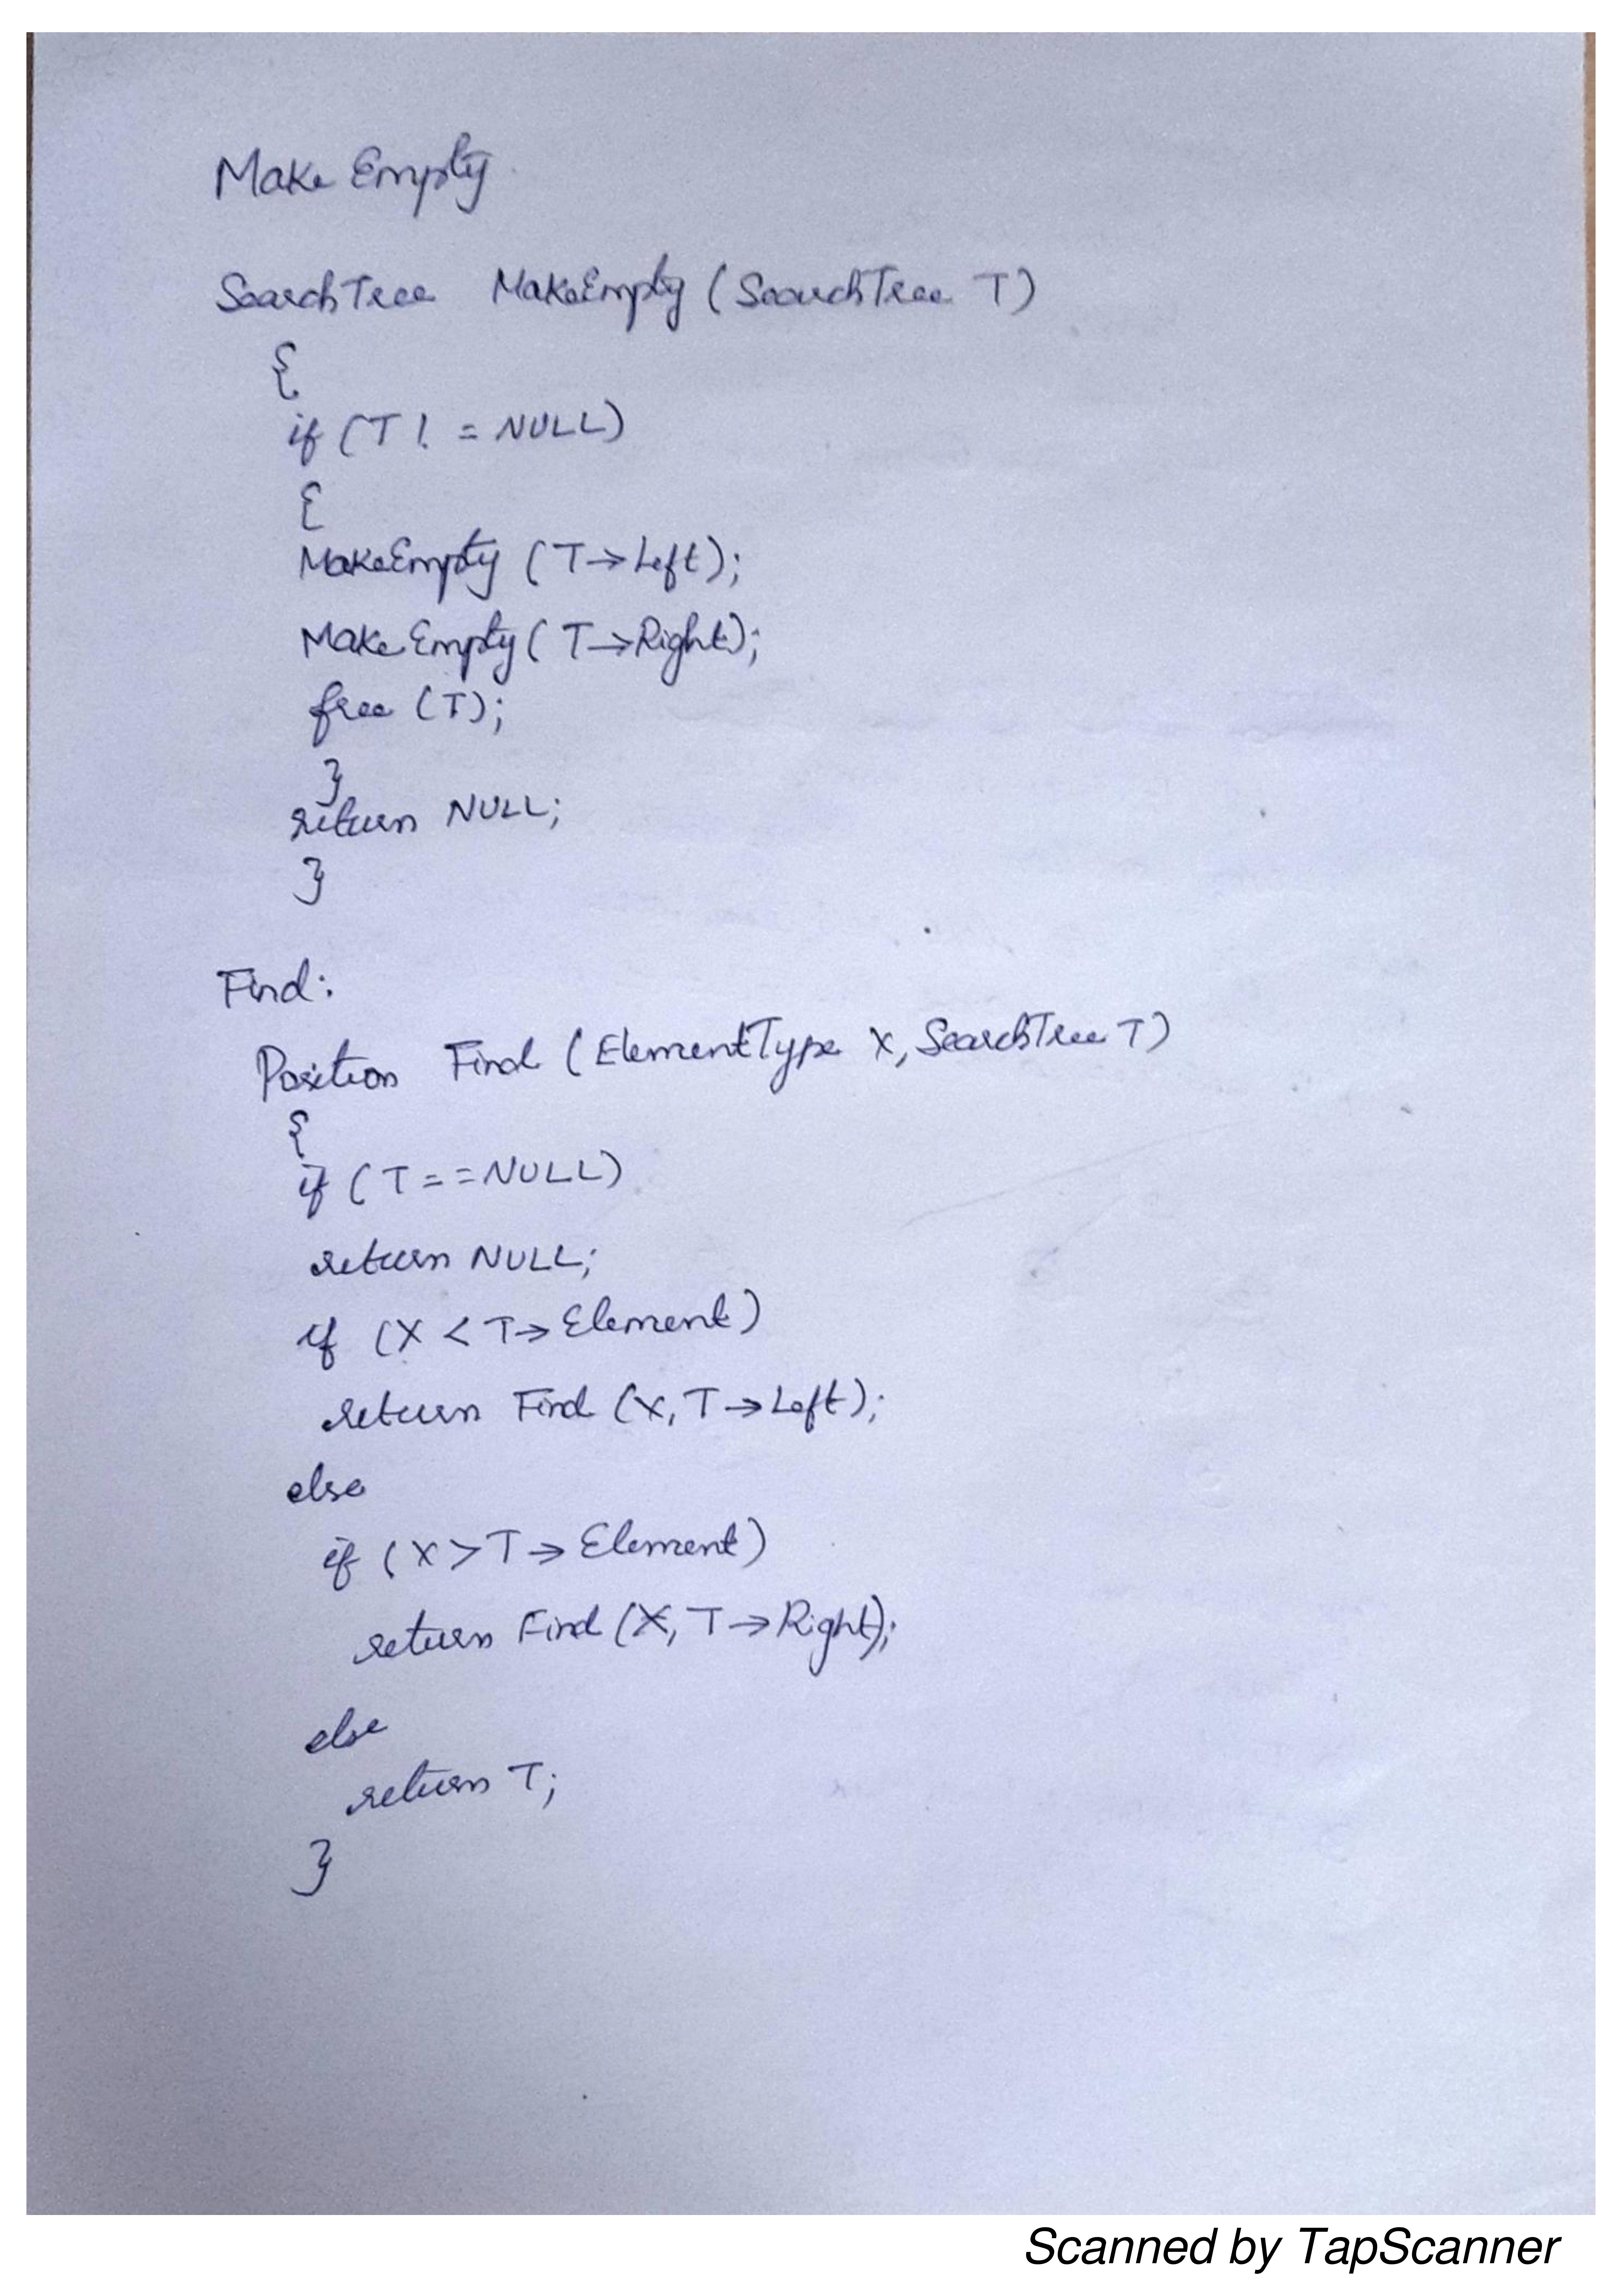 Make Empty
SearchTree MakeEmpty (SearchTree T)
{
if (T ! = NULL)
{
MakeEmpty (T→Left);
MakeEmpty (T→Right);
free (T);
}
return NULL;
}
Find:
Position Find (ElementType X, SearchTree T)
{
if (T = = NULL)
return NULL;
if (X < T→Element)
return Find (X, T→Left);
else
if (X > T→Element)
return Find (X, T→Right);
else
return T;
}
Scanned by TapScanner